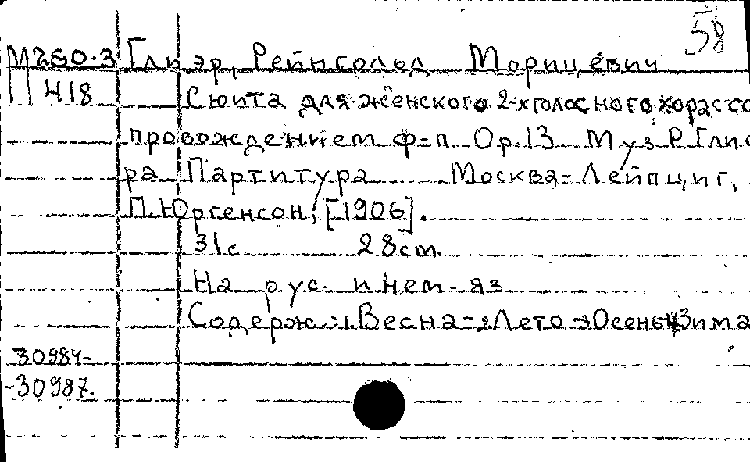 58
М280-3 Глиэр, Рейнгольд Морицевич
П 418 Сюита для женского 2-хголосного хора с со
провождением ф-п. Op.13 Муз. Р. Глиэ
ра Партитура Москва-Лейпциг,
П. Юргенсон, [1906].
31с 28см
На рус. и нем. яз
Содерж.: 1. Весна-2. Лето-3. Осень 4. Зима
30984-
-30987.